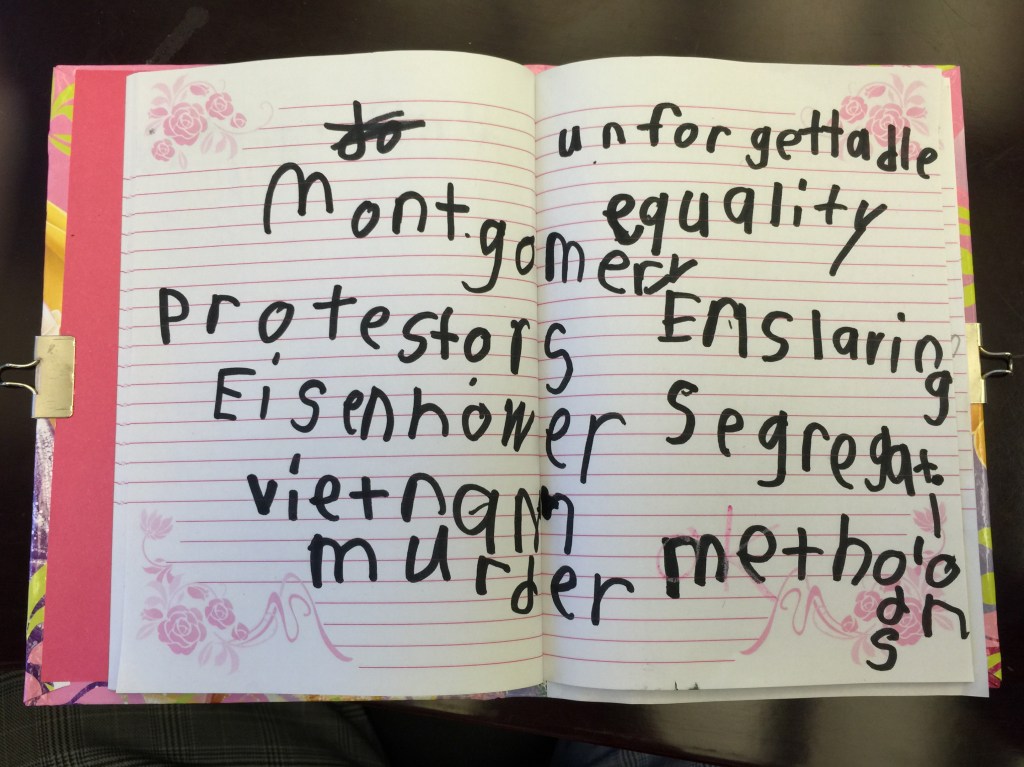 Montgomery
protestors
Eisenhower
vietnam
murder
unforgettadle
equality
Enslaring
Segregation
methods